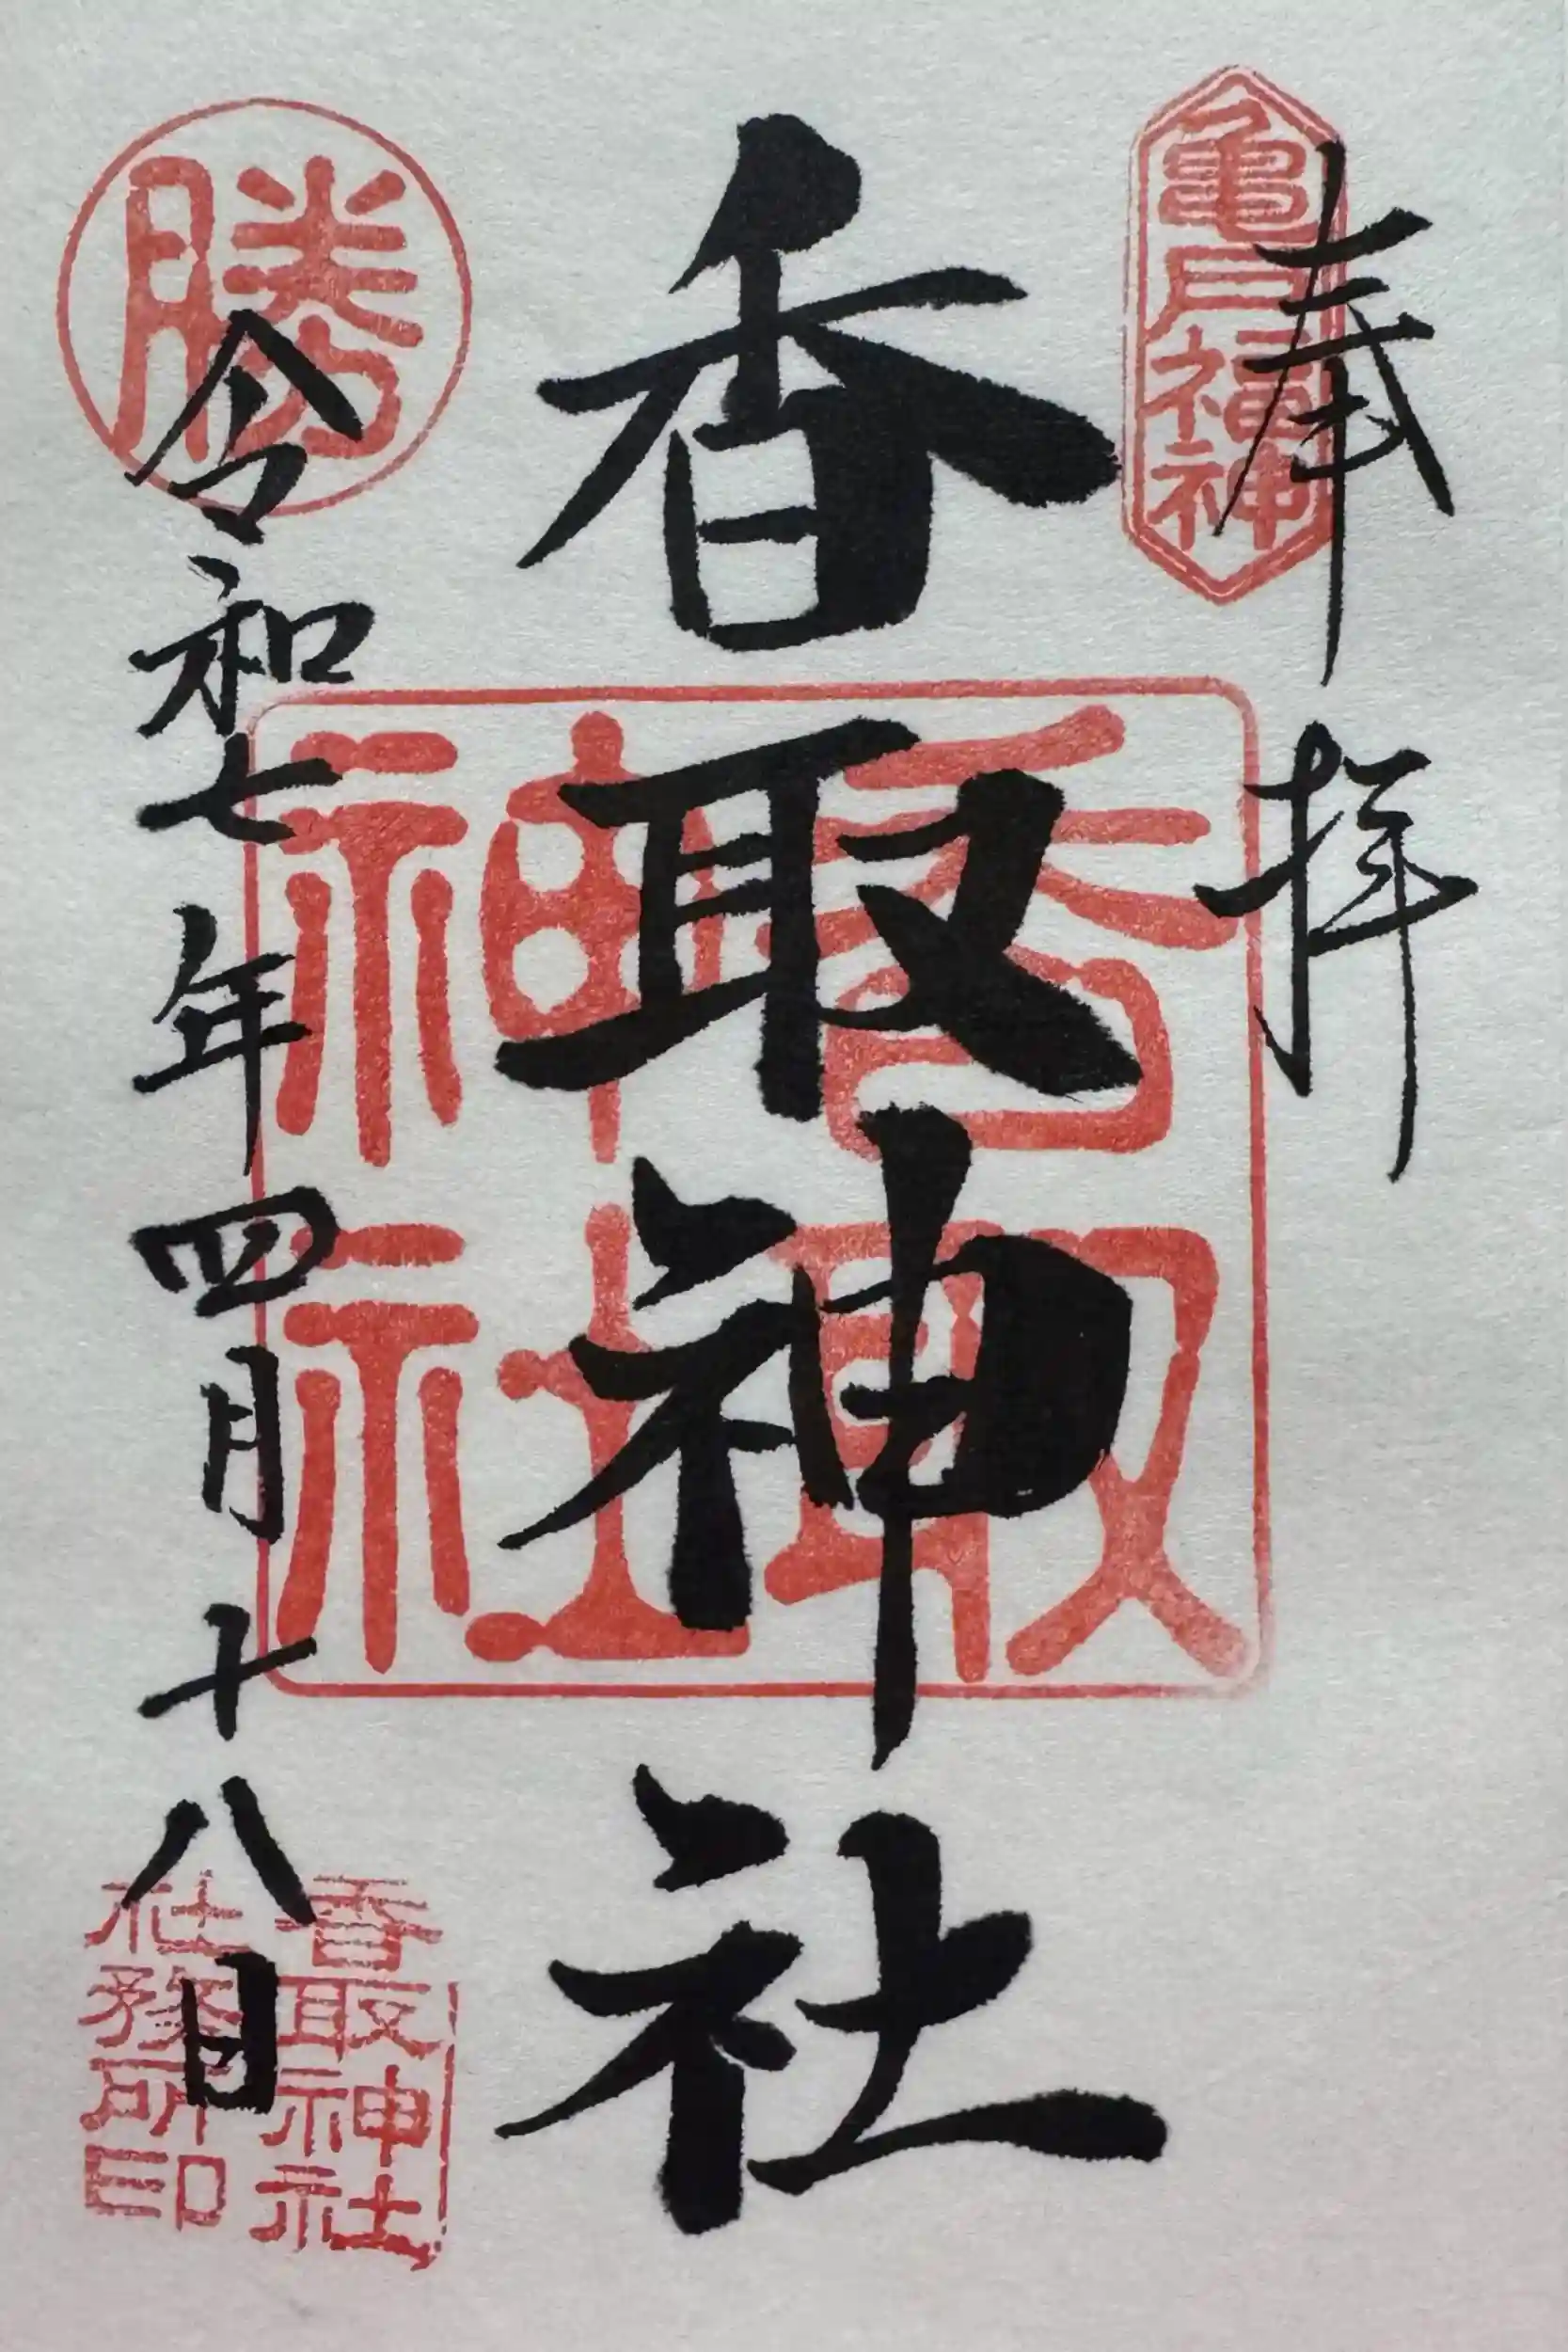 奉拝
亀戸福神
香取神社
香取神社
勝
令和七年四月十八日
香取神社
社務所印